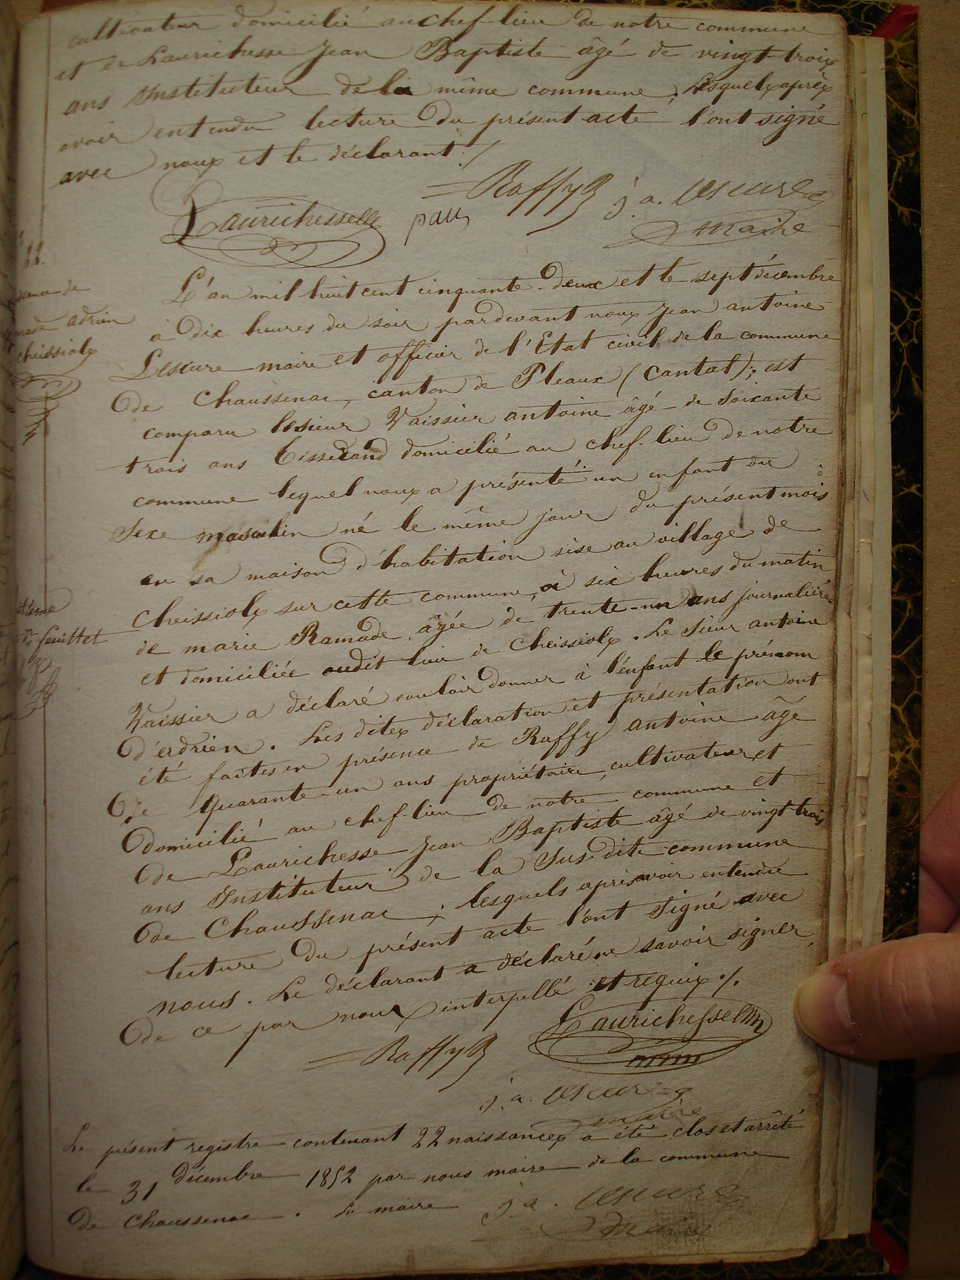 cultivateur domicilié au chef-lieu de notre commune
et de Laurichesse Jean Baptiste âgé de vingt trois
ans Instituteur de la même commune, lesquels après
avoir entendu lecture du présent acte l'ont signé
avec nous et le déclarant ./.
Laurichesse pau Raffy j. a. Lescure
maire
22.
naissance de
Ramade adrien
cheissiolx
L'an mil huit cent cinquante-deux et le sept décembre
à dix heures du soir pardevant nous Jean antoine
Lescure maire et officier de l'Etat civil de la commune
de Chaussenac, canton de Pleaux (Cantal); est
comparu le sieur Vaissier antoine âgé de soixante
trois ans Tisserand domicilié au chef-lieu de notre
commune lequel nous a présenté un enfant du
sexe masculin né le même jour du présent mois
en sa maison d'habitation sise au village de
Cheissiolx sur cette commune, à six heures du matin
de marie Ramade, âgée de trente-un ans journalière
et domiciliée audit lieu de Cheissiolx. Le Sieur antoine
Vaissier a déclaré vouloir donner à l'enfant le prénom
d'adrien. Les dites déclaration et présentation ont
été faites en présence de Raffy antoine âgé
de quarante-un ans propriétaire, cultivateur et
domicilié au chef-lieu de notre commune et
de Laurichesse Jean Baptiste âgé de vingt trois
ans Instituteur de la Susdite commune
de Chaussenac; lesquels après avoir entendu
lecture du présent acte l'ont signé avec
nous. Le déclarant a déclaré ne savoir signer
de ce par nous interpellé et requis ./.
feuillet
Raffy Laurichesse
j. a. Lescure
maire
Le présent registre contenant 22 naissances a été clos et arrêté
le 31 décembre 1852 par nous maire de la commune
de Chaussenac. Le maire j. a. Lescure
maire